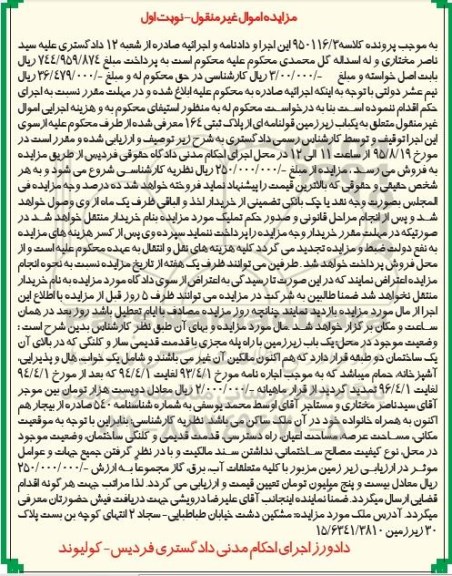 مزایده اموال غیر منقول - نوبت اول
به موجب پرونده کلاسه ۹۵۰۱۱۶/۳ این اجرا و دادنامه و اجرائیه صادره از شعبه ۱۲ دادگستری علیه سید
ناصر مختاری و له اسداله گل محمدی محکوم علیه محکوم است به پرداخت مبلغ ۷۴۴/۹۵۹/۸۷۴ ریال
بابت اصل خواسته و مبلغ ۳/۰۰۰/۰۰۰ ریال کارشناسی در حق محکوم له و مبلغ ۳۶/۴۷۹/۰۰۰ ریال
نیم عشر دولتی با توجه به اینکه اجرائیه صادره به محکوم علیه ابلاغ شده و در مهلت مقرر نسبت به اجرای
حکم اقدام ننموده است بنا به درخواست محکوم له به منظور استیفای محکوم به و هزینه اجرایی اموال
غیر منقول متعلق به یکباب زیرزمین قولنامه ای از پلاک ثبتی ۱۶۴ معرفی شده از طرف محکوم علیه ازسوی
این اجرا توقیف و توسط کارشناس رسمی دادگستری به شرح زیر توصیف و ارزیابی شده و مقرر است در
مورخ ۹۵/۸/۱۹ از ساعت ۱۱ الی ۱۲ در محل اجرای احکام مدنی دادگاه حقوقی فردیس از طریق مزایده
به فروش می رسد. مزایده از مبلغ ۲۵۰/۰۰۰/۰۰۰ ریال نظریه کارشناسی شروع می شود و به هر
شخص حقیقی و حقوقی که بالاترین قیمت را پیشنهاد نماید فروخته خواهد شد ده درصد وجه مزایده فی
المجلس بصورت وجه نقد یا چک بانکی تضمینی از خریدار اخذ و الباقی ظرف یک ماه از وی وصول خواهد
شد و پس از انجام مراحل قانونی و صدور حکم تملیک مورد مزایده بنام خریدار منتقل خواهد شد در
صورتیکه در مهلت مقرر خریدار وجه مزایده را پرداخت ننماید سپرده وی پس از کسر هزینه های مزایده
به نفع دولت ضبط و مزایده تجدید می گردد کلیه هزینه های نقل و انتقال به عهده محکوم علیه است و از
محل فروش پرداخت خواهد شد. طرفین می توانند ظرف یک هفته از تاریخ مزایده نسبت به نحوه انجام
مزایده اعتراض نمایند که در این صورت تا رسیدگی به اعتراض از سوی دادگاه مورد مزایده به نام خریدار
منتقل نخواهد شد ضمنا طالبین به شرکت در مزایده می توانند ظرف ۵ روز قبل از مزایده با اطلاع این
اجرا از مال مورد مزایده بازدید نمایند چنانچه روز مزایده مصادف با ایام تعطیل باشد روز بعد در همان
ساعت و مکان برگزار خواهد شد. مال مورد مزایده و بهای آن طبق نظر کارشناس بدین شرح است :
وضعیت موجود در محل: یک باب زیرزمین با راه پله مجزی با قدمت قدیمی ساز و کلنگی که در بالای آن
یک ساختمان دو طبقه قرار دارد که هم اکنون مالکین آن غیر می باشند و شامل یک خواب، هال و پذیرایی،
آشپزخانه، حمام میباشد که به موجب اجاره نامه مورخ ۹۳/۴/۱ لغایت ۹۴/۴/۱ که بعد از مورخ ۹۴/۴/۱
لغایت ۹۶/۴/۱ تمدید گردید از قرار ماهیانه ۲/۰۰۰/۰۰۰ ریال معادل دویست هزار تومان بین موجر
آقای سید ناصر مختاری و مستاجر آقای اوسط محمد یوسفی به شماره شناسنامه ۵۴۰ صادره از بیجار هم
اکنون به همراه خانواده خود در آن ملک ساکن می باشد. نظریه کارشناسی: بنابراین با توجه به موقعیت
مکانی، مساحت عرصه، مساحت اعیان، راه دسترسی، قدمت قدیمی و کلنگی ساختمان، وضعیت موجود
در محل، نوع کیفیت مصالح ساختمانی، نداشتن سند مالکیت و با در نظر گرفتن جمیع جهات و عوامل
موثر در ارزیابی زیر زمین مزبور با کلیه متعلقات آب، برق، گاز مجموعا به ارزش ۲۵۰/۰۰۰/۰۰۰
ریال معادل بیست و پنج میلیون تومان تعیین قیمت و ارزیابی می گردد. لذا مراتب جهت هر گونه اقدام
قضایی ارسال میگردد. ضمنا نماینده اینجانب آقای علیرضا درویشی جهت دریافت فیش حضورتان معرفی
میگردد. آدرس ملک مورد مزایده: مشکین دشت خیابان طباطبایی- سجاد ۲ انتهای کوچه بن بست پلاک
۳۰ زیر زمین ۱۵/۶۳۴۱/۳۸۱۰
دادورز اجرای احکام مدنی دادگستری فردیس - کولیوند